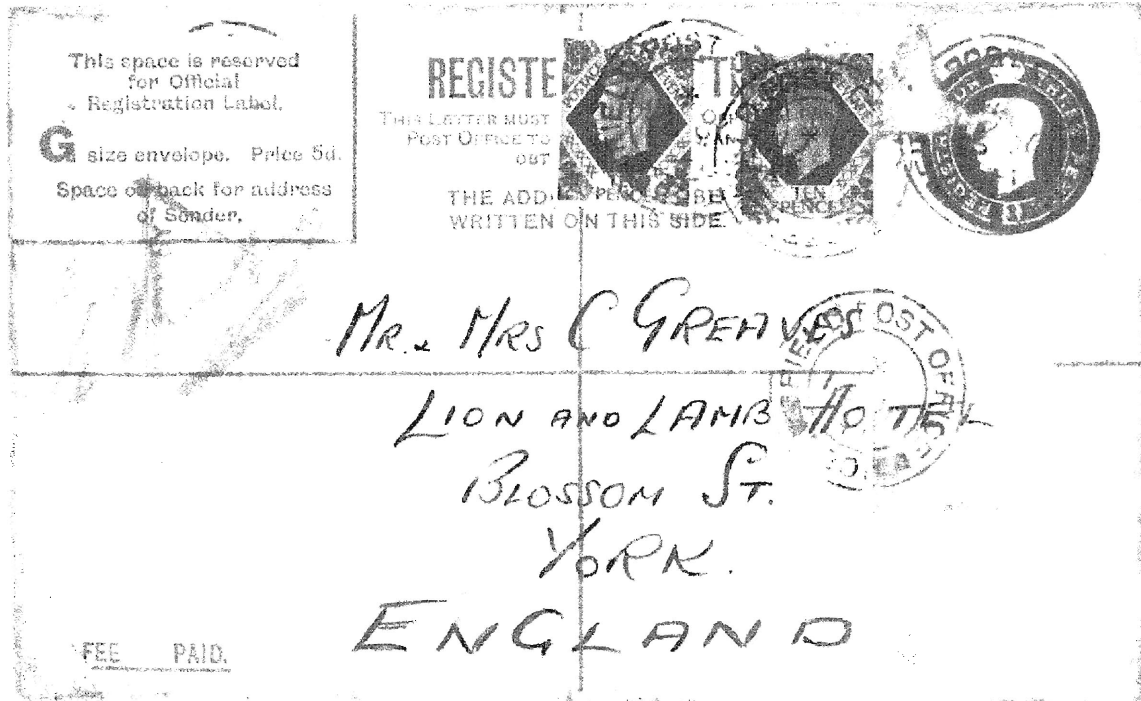 This space is reserved
for Official
Registration Label.
G size envelope. Price 5d.
Space on back for address
of Sender.
REGISTE
THIS LETTER MUST
POST OFFICE TO
THE ADD
WRITTEN ON THIS SIDE.
TEN
PENCE
FIELD POST OFFICE
MR. & MRS C GREAVES
LION AND LAMB HOTEL
BLOSSOM ST.
YORK.
ENGLAND
FEE PAID.